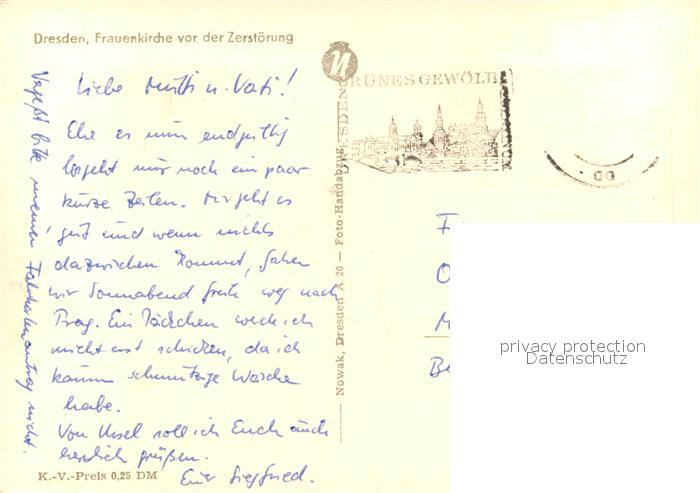 Dresden, Frauenkirche vor der Zerstörung
Liebe Mutti u. Vati!
Ehe es nun endgültig
losgeht nur noch ein paar
kurze Zeilen. Mir geht es
gut und wenn nichts
dazwischen kommt, fahren
wir Sonnabend früh weg nach
Prag. Ein Päckchen werde ich
nicht erst schicken, da ich
kaum schmutzige Wäsche
habe.
Von Ursel soll ich Euch auch
herzlich grüßen.
Euer Siegfried.
Vergeßt bitte meinen Fahrkartenantrag nicht.
K.-V.-Preis 0,25 DM
Nowak, Dresden A 20 — Foto-Handabzug
GRÜNES GEWÖLBE
DRESDEN
DD
privacy protection
Datenschutz